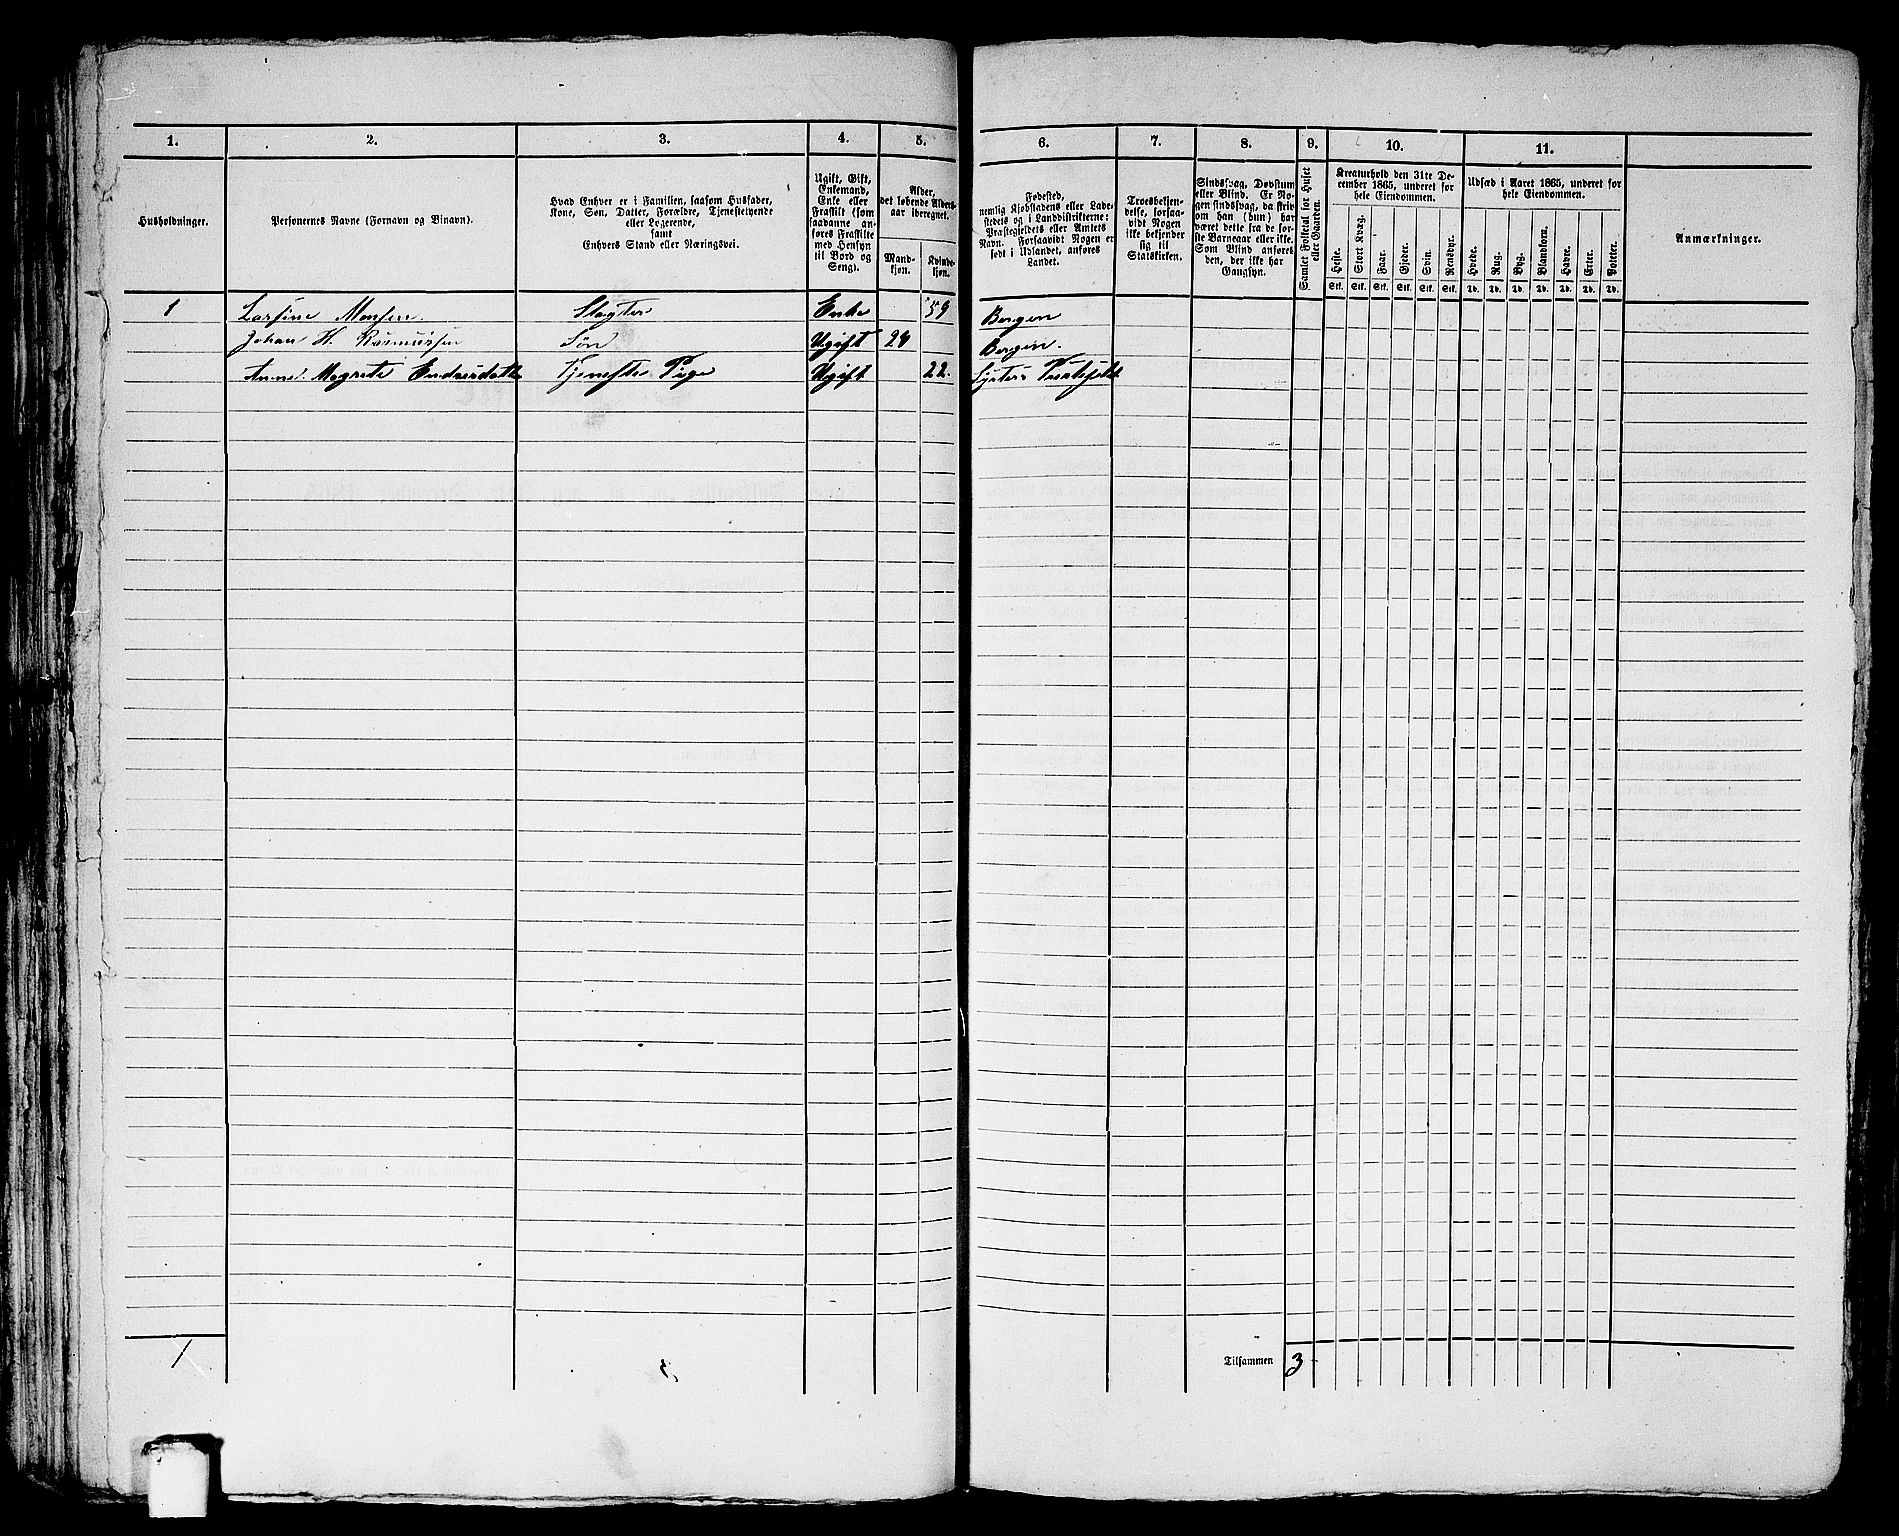 1. 2. 3. 4. 5. 6. 7. 8. 9. 10. 11.
Husholdninger.
Personernes Navne (Fornavn og Binavn).
Hvad Enhver er i Familien, saasom Husfader,
Kone, Søn, Datter, Forældre, Tjenestetyende
eller Logerende,
samt
Enhvers Stand eller Næringsvei.
Ugift, Gift,
Enkemand,
Enke eller
Fraskilt (som
saadanne an-
føres Fraskilte
med Hensyn
til Bord og
Seng).
Alder,
det løbende Alders-
aar iberegnet.
Mand-
kjøn.
Kvinde-
kjøn.
Fødested,
nemlig Kjøbstadens eller Lade-
stedets og i Landdistrikterne:
Præstegjeldets eller Amtets
Navn. Forsaavidt Nogen er
født i Udlandet, anføres
Landet.
Troesbekjen-
delse, forsaa-
vidt Nogen
ikke bekjender
sig til
Statskirken.
Sindssvag, Døvstum
eller Blind. Er No-
gen sindssvag, da skriv
om han (hun) har
været dette fra de før-
ste Barneaar eller ikke.
Som Blind anføres
den, der ikke har
Gangsyn.
Samlet Folketal for Huset
eller Gaarden.
Kreaturhold den 31te De-
cember 1865, underet for
hele Eiendommen.
Heste. Stort Kvæg. Faar. Gjeder. Svin. Rensdyr.
Stk. Stk. Stk. Stk. Stk. Stk.
Udsæd i Aaret 1865, underet for
hele Eiendommen.
Hvede. Rug. Byg. Blandkorn. Havre. Erter. Poteter.
Td. Td. Td. Td. Td. Td. Td.
Anmærkninger.
1 Larsine Monsen. Slagter Enke 59 Bergen
Johan H. Rasmussen Søn Ugift 24 Bergen.
Anne Magrete Endresdatt Tjeneste Pige Ugift 22. Præstegjeld
1 3 Tilsammen 3